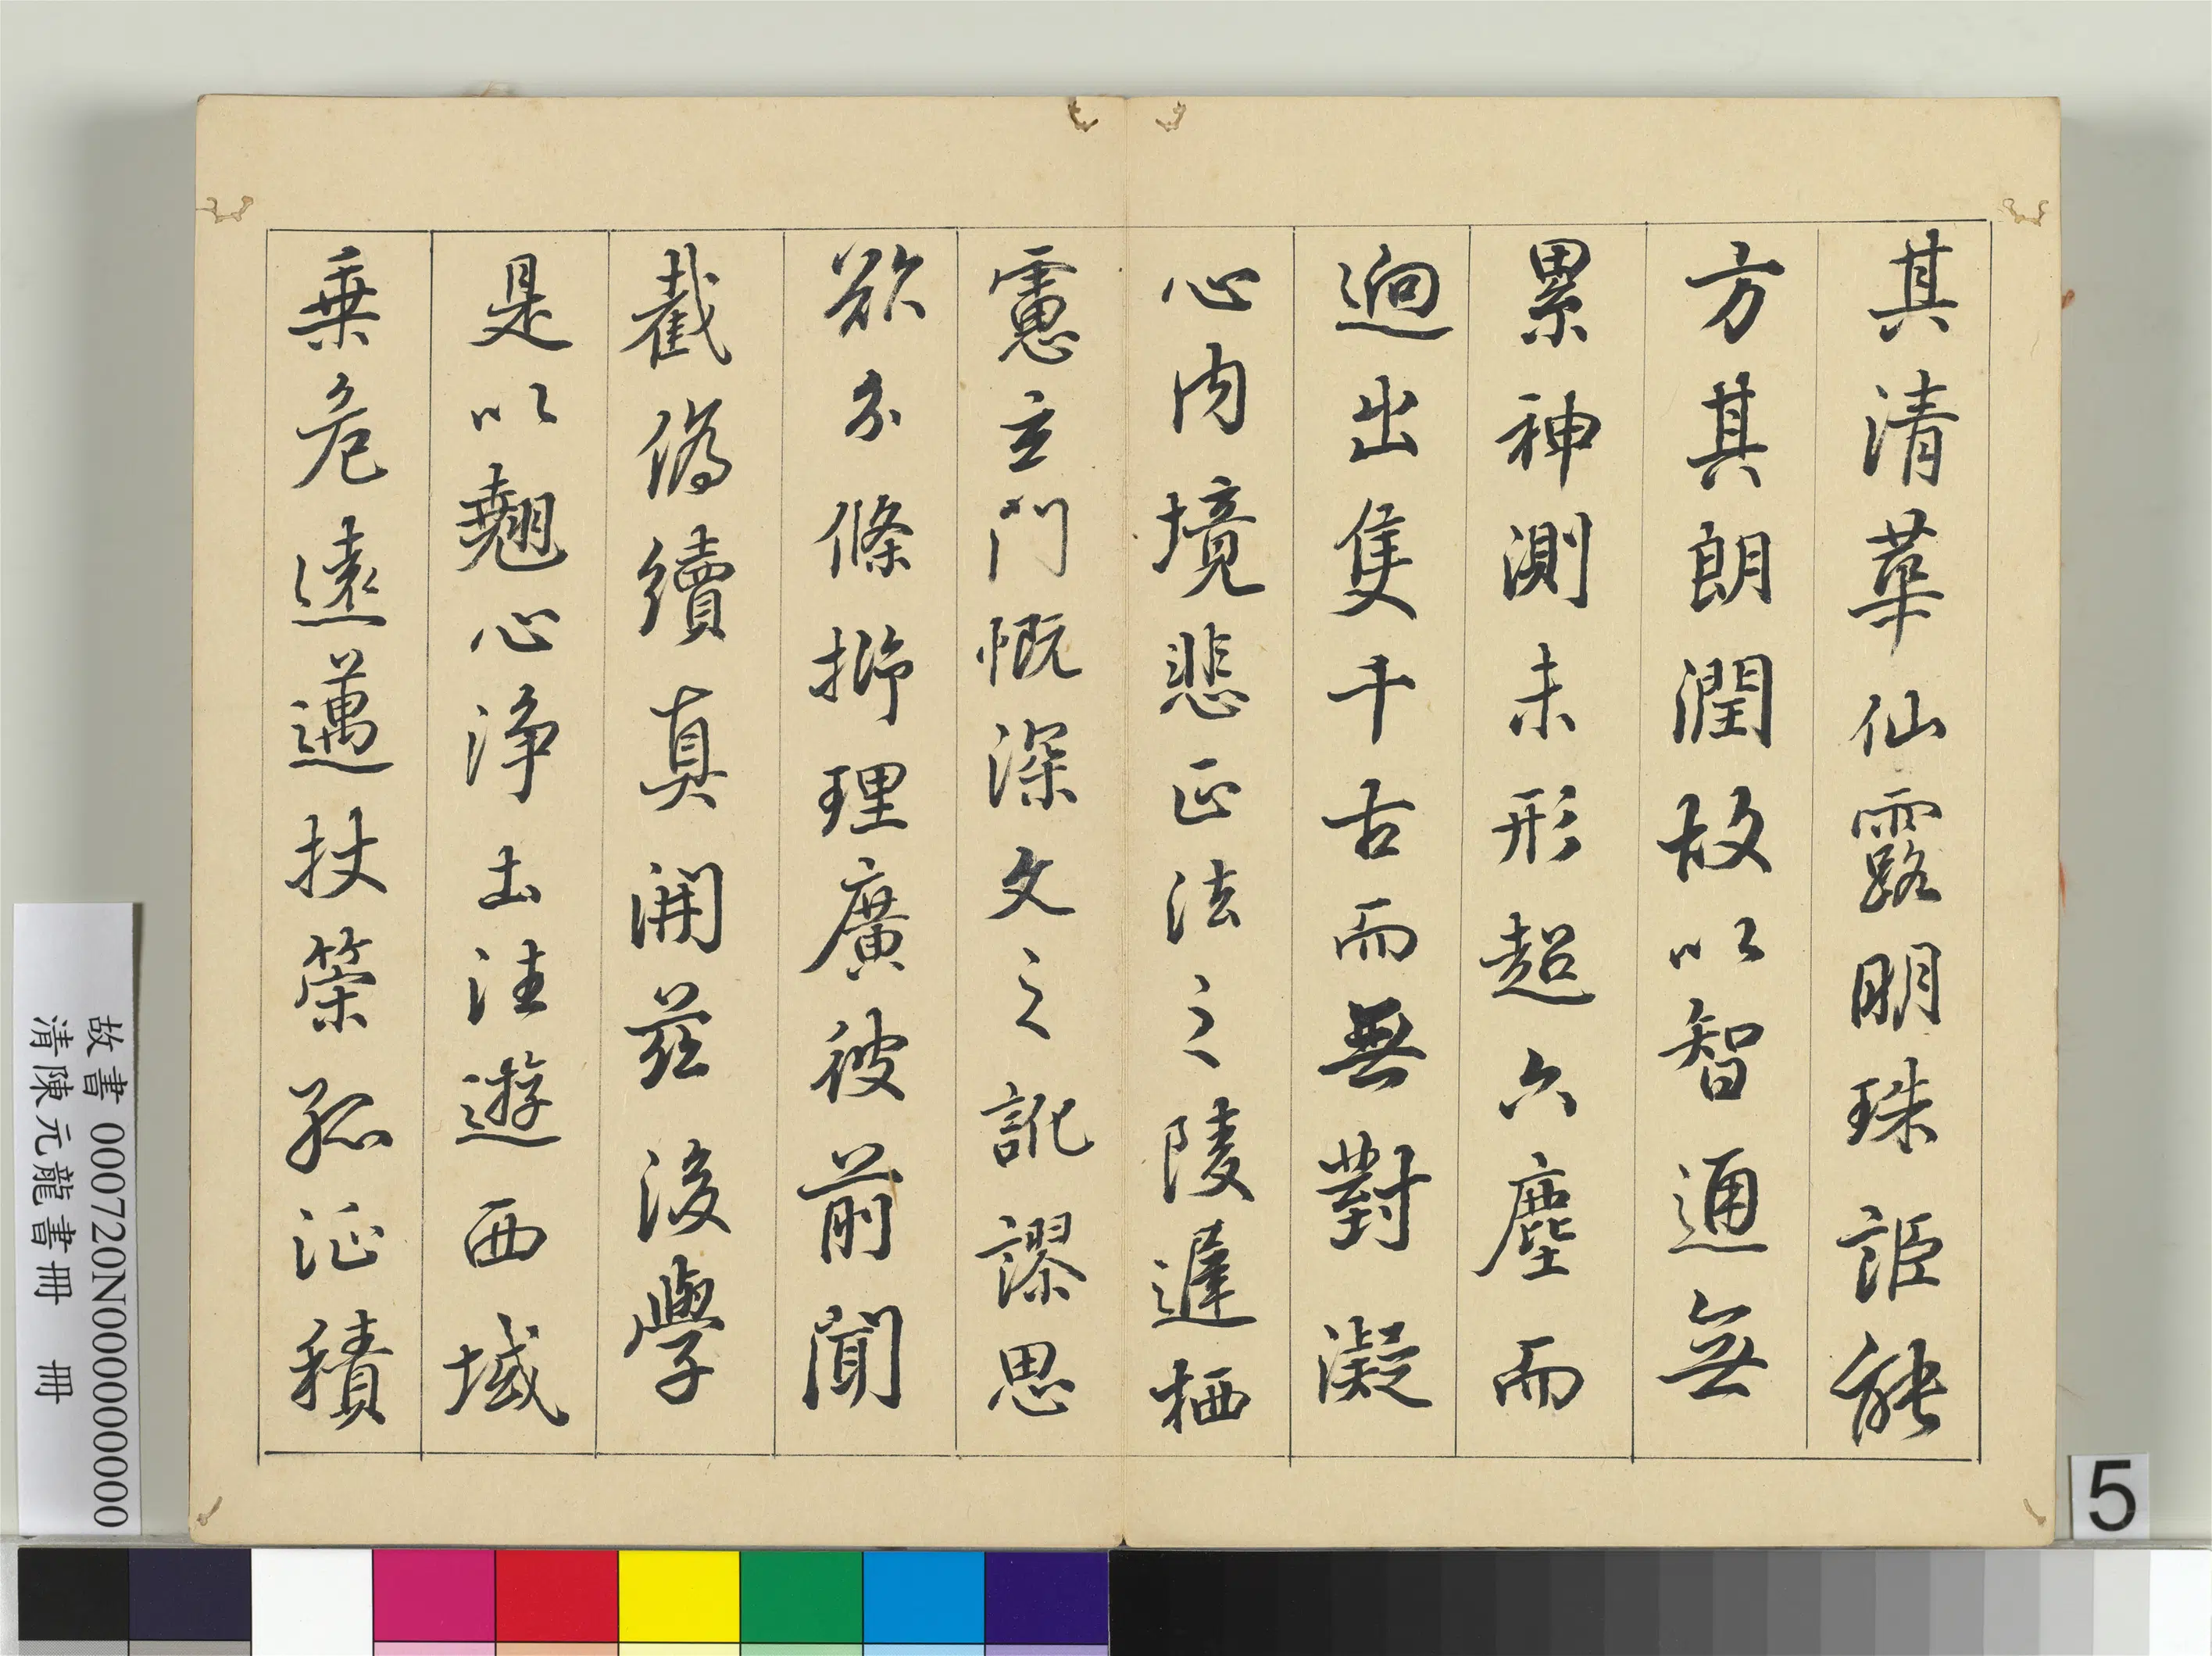 其清華仙露明珠詎能
方其朗潤故以智通無
累神測未形超六塵而
迥出隻千古而無對凝
心內境悲正法之陵遲栖
慮玄門慨深文之訛謬思
欲分條析理廣彼前聞
截偽續真開茲後學
是以翹心淨土法遊西域
乘危遠邁杖策孤征積
故書 000720N000000000
清陳元龍書冊 冊
5